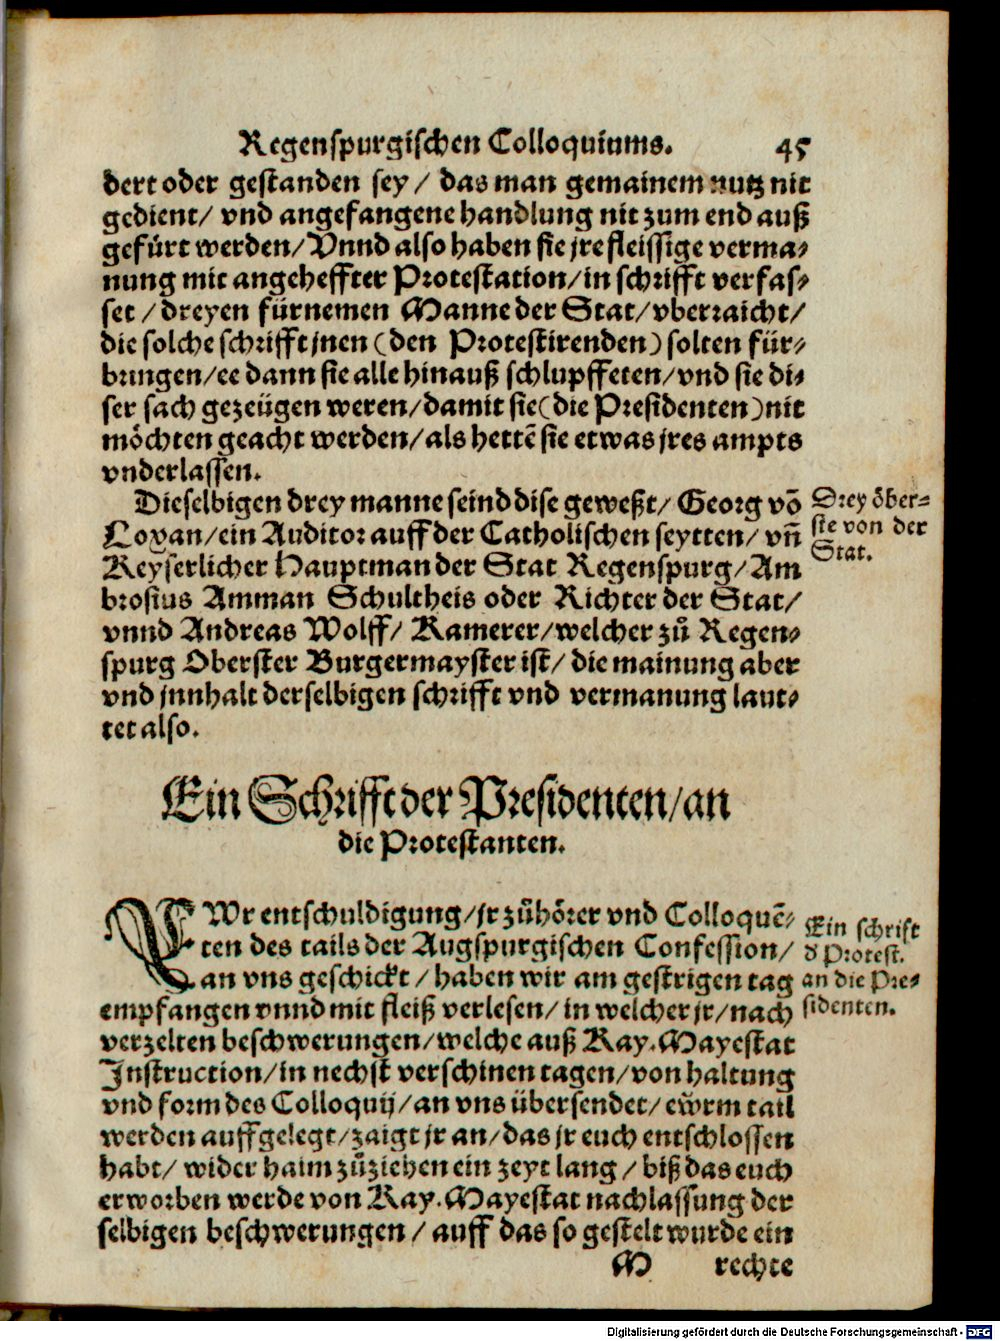 Regenspurgischen Colloquiums. 45
dert oder gestanden sey / das man gemainem nutz nit
gedient/ vnd angefangene handlung nit zum end auß
gefürt werden/ Vnnd also haben sie jre fleissige verma⸗
nung mit angeheffter Protestation/ in schrifft verfas⸗
set / dreyen fürnemen Manne der Stat/ vberraicht/
die solche schrifft jnen (den Protestirenden) solten für⸗
bringen/ ee dann sie alle hinauß schlupffeten/ vnd sie di⸗
ser sach gezeügen weren/ damit sie (die Presidenten) nit
möchten geacht werden/ als hettē sie etwas jres ampts
vnderlassen.
Dieselbigen drey manne seind dise geweßt/ Georg vō
Loxan/ ein Auditor auff der Catholischen seytten/ vn̄
Keyserlicher Hauptman der Stat Regenspurg/ Am
brosius Amman Schultheis oder Richter der Stat/
vnnd Andreas Wolff/ Kamerer/ welcher zů Regen⸗
spurg Oberster Burgermayster ist/ die mainung aber
vnd jnnhalt derselbigen schrifft vnd vermanung laut⸗
tet also.
Drey ȫber⸗
ste von der
Stat.
Ein Schrifft der Presidenten/ an
die Protestanten.
EWr entschuldigung/ jr zůhörer vnd Colloquē⸗
ten des tails der Augspurgischen Confession/
an vns geschickt / haben wir am gestrigen tag
empfangen vnnd mit fleiß verlesen/ in welcher jr/ nach
verzelten beschwerungen/ welche auß Kay. Mayestat
Instruction/ in nechst verschinen tagen/ von haltung
vnd form des Colloquij/ an vns übersendet/ ewrm tail
werden auffgelegt/ zaigt jr an/ das jr euch entschlossen
habt/ wider haim zůziehen ein zeyt lang / biß das euch
erworben werde von Kay. Mayestat nachlassung der
selbigen beschwerungen / auff das so gestelt wurde ein
Ein schrift
d̕ Protest.
an die Pre⸗
sidenten.
M rechte
Digitalisierung gefördert durch die Deutsche Forschungsgemeinschaft - DFG